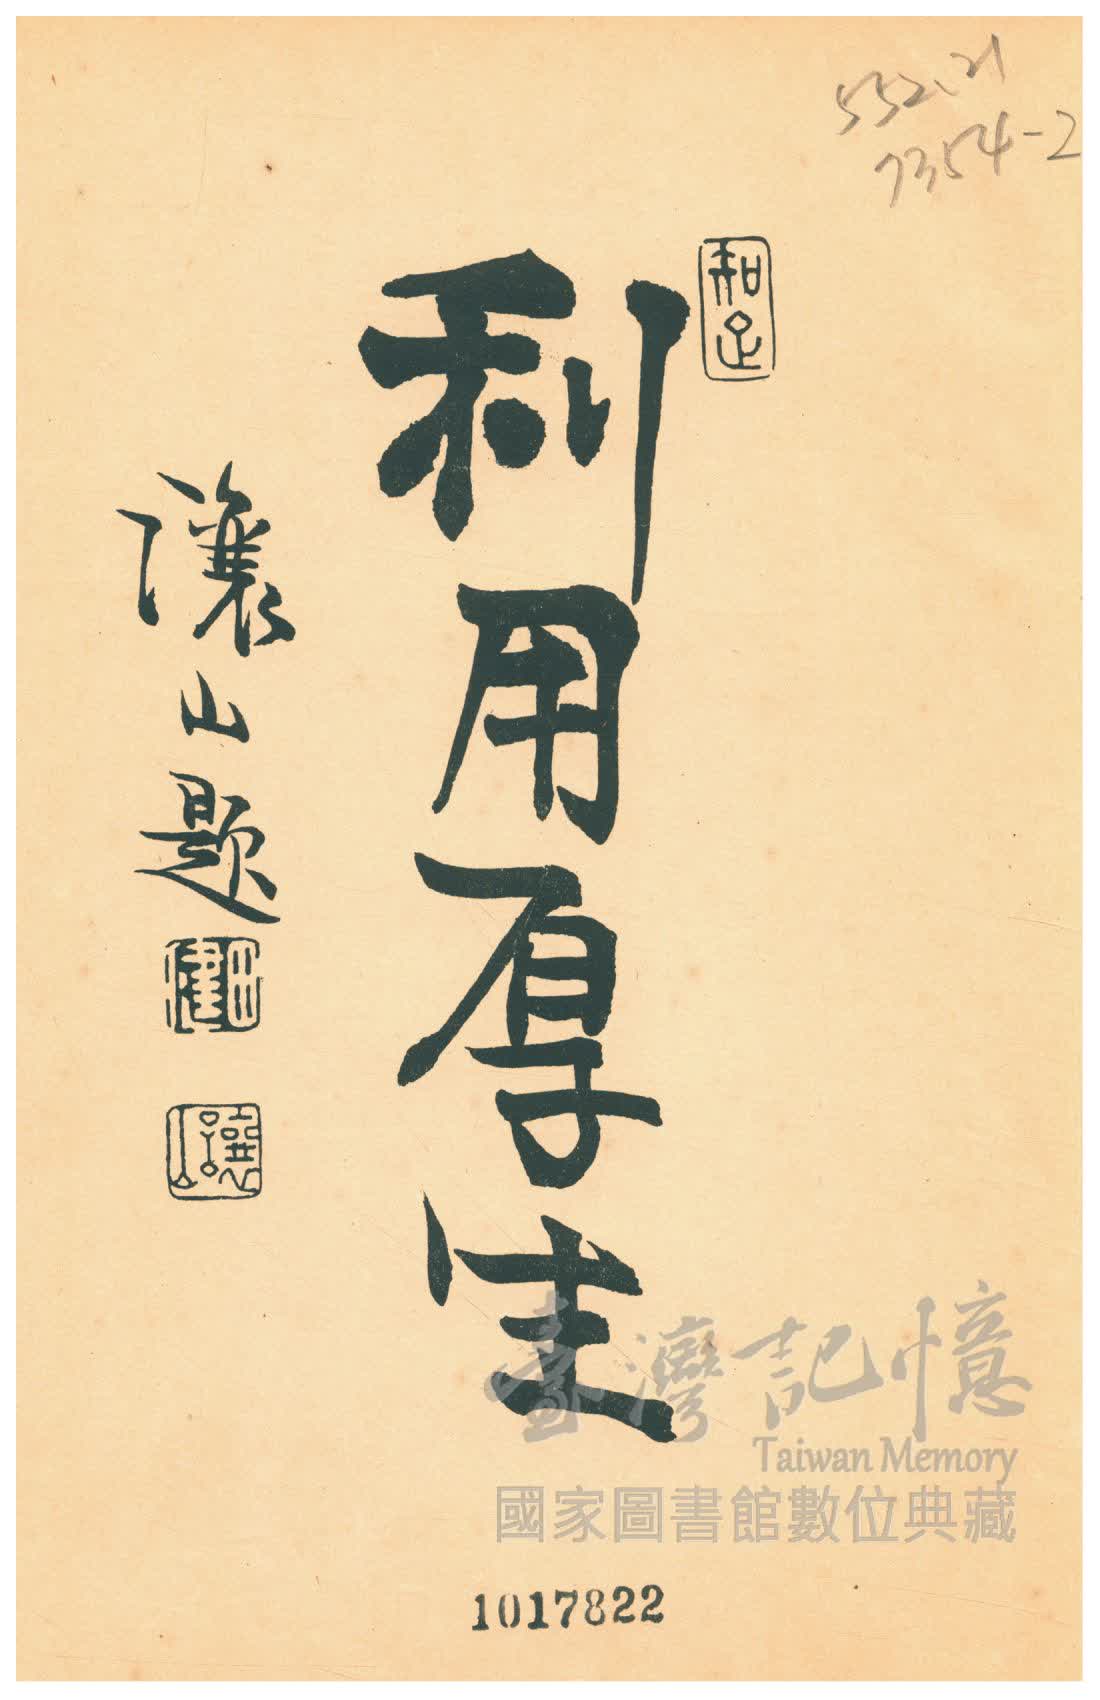 552.21
7354-2
知足
利用厚生
讓山題
臺灣記憶
Taiwan Memory
國家圖書館數位典藏
1017822